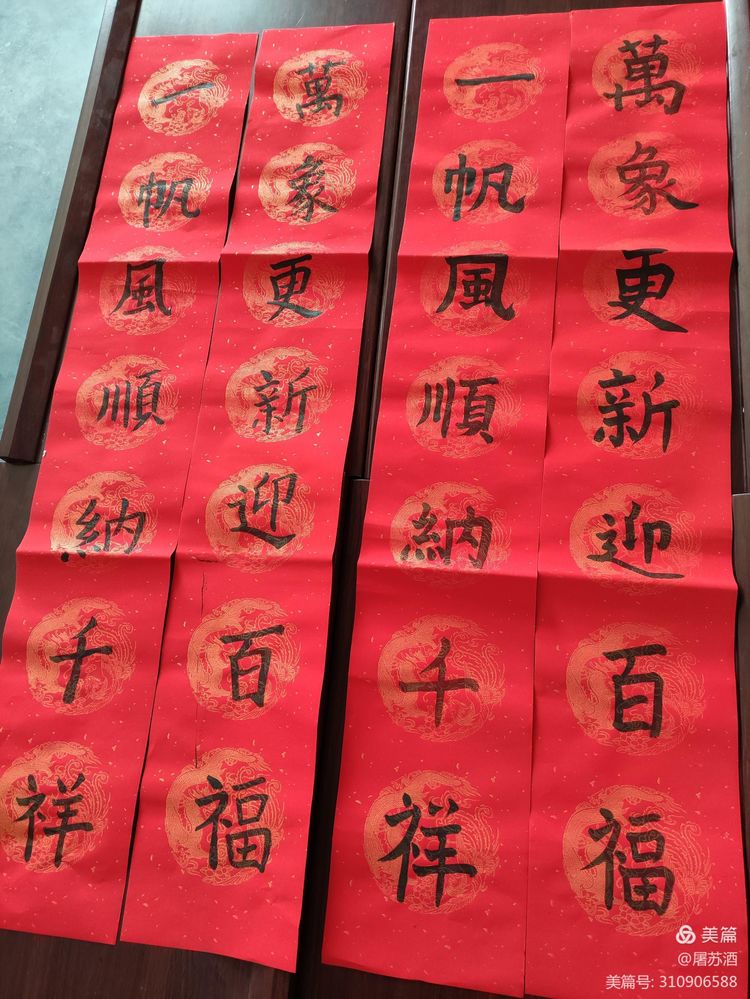 萬象更新迎百福
一帆風順納千祥
萬象更新迎百福
一帆風順納千祥
美篇
@屠苏酒
美篇号: 310906588